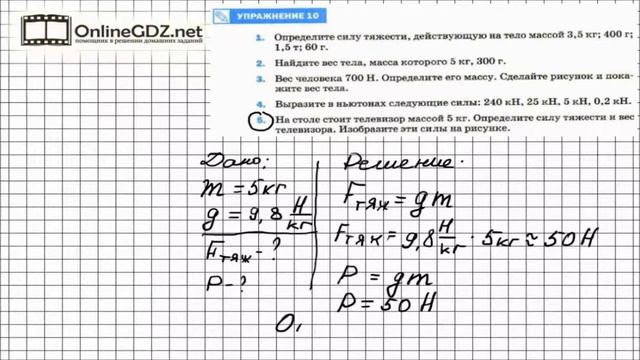 OnlineGDZ.net
помощник в решении домашних заданий
УПРАЖНЕНИЕ 10
1. Определите силу тяжести, действующую на тело массой 3,5 кг; 400 г;
1,5 т; 60 г.
2. Найдите вес тела, масса которого 5 кг, 300 г.
3. Вес человека 700 Н. Определите его массу. Сделайте рисунок и пока-
жите вес тела.
4. Выразите в ньютонах следующие силы: 240 кН, 25 кН, 5 кН, 0,2 кН.
5. На столе стоит телевизор массой 5 кг. Определите силу тяжести и вес
телевизора. Изобразите эти силы на рисунке.
Дано:
m = 5 кг
g = 9,8 Н/кг
Fтяж - ?
P - ?
Решение:
Fтяж = gm
Fтяж = 9,8 Н/кг · 5кг ≈ 50 Н
P = gm
P = 50 Н
О,